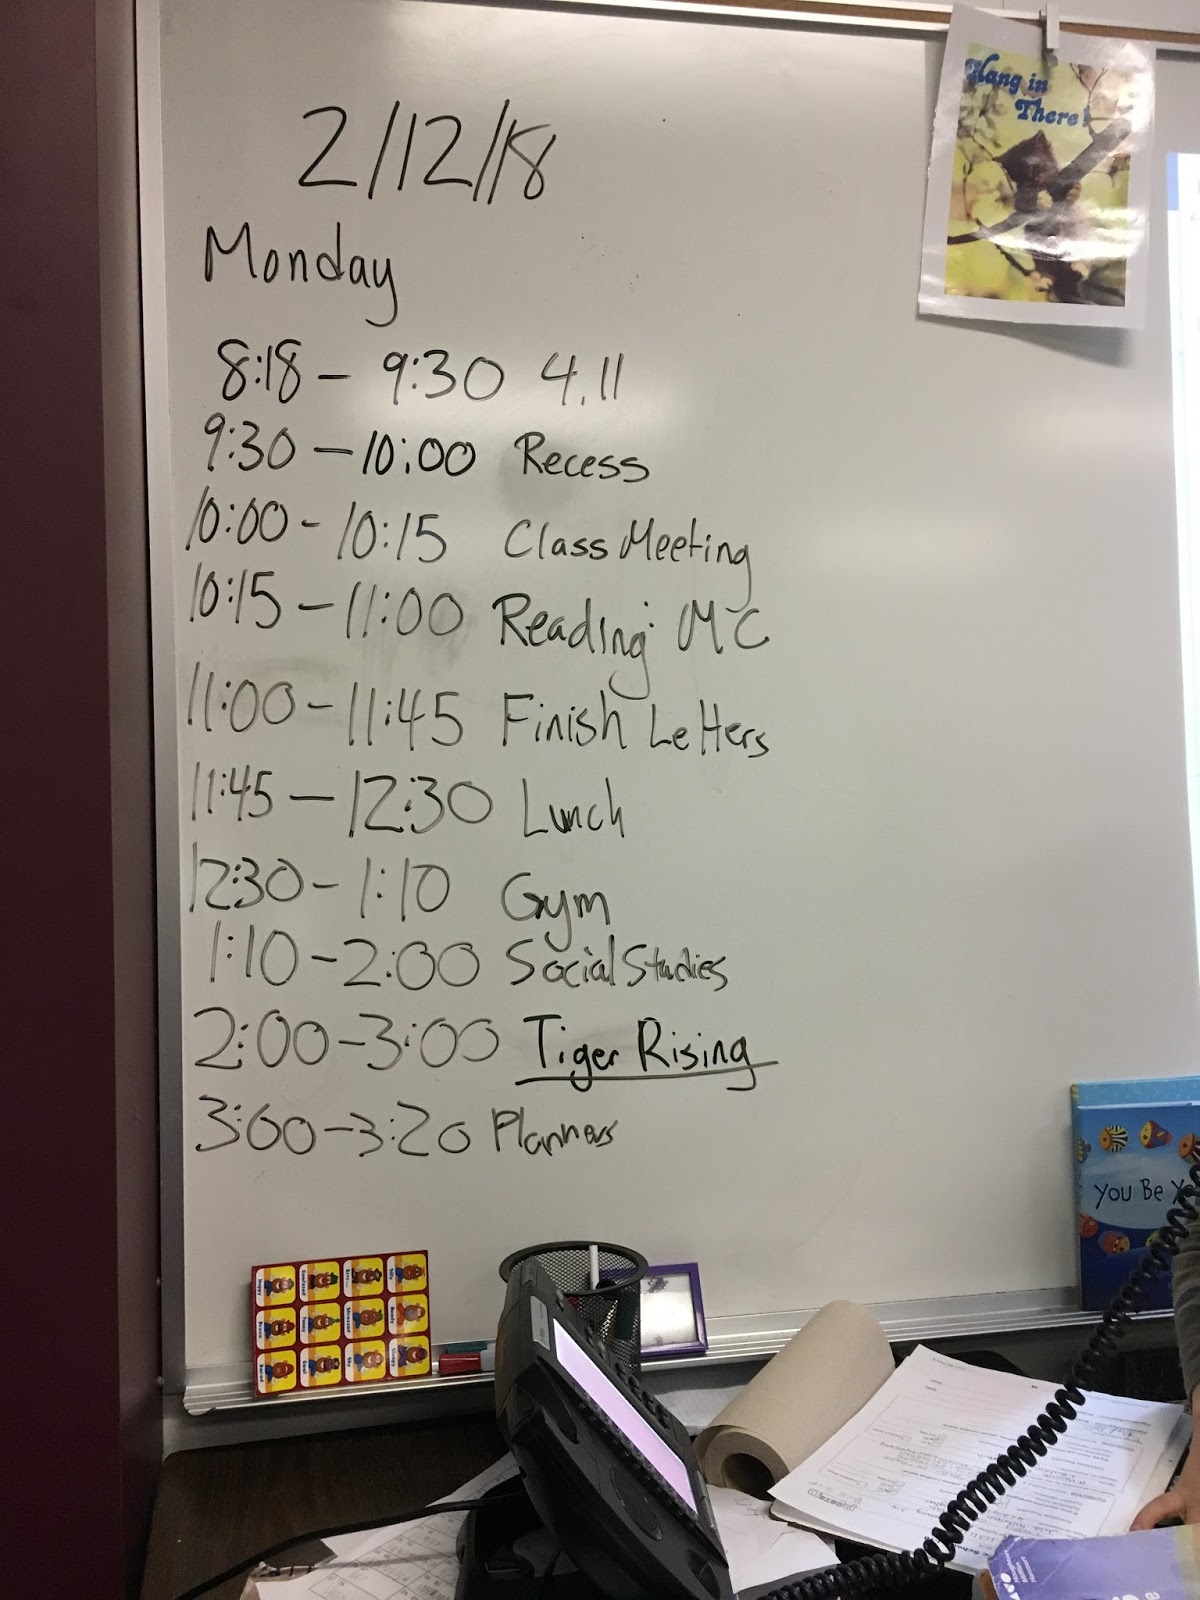 2/12/18
Monday
8:18 - 9:30 4.11
9:30 - 10:00 Recess
10:00 - 10:15 Class Meeting
10:15 - 11:00 Reading MC
11:00 - 11:45 Finish Letters
11:45 - 12:30 Lunch
12:30 - 1:10 Gym
1:10 - 2:00 Social Studies
2:00 - 3:00 Tiger Rising
3:00 - 3:20 Planners
Hang in
There!
You Be